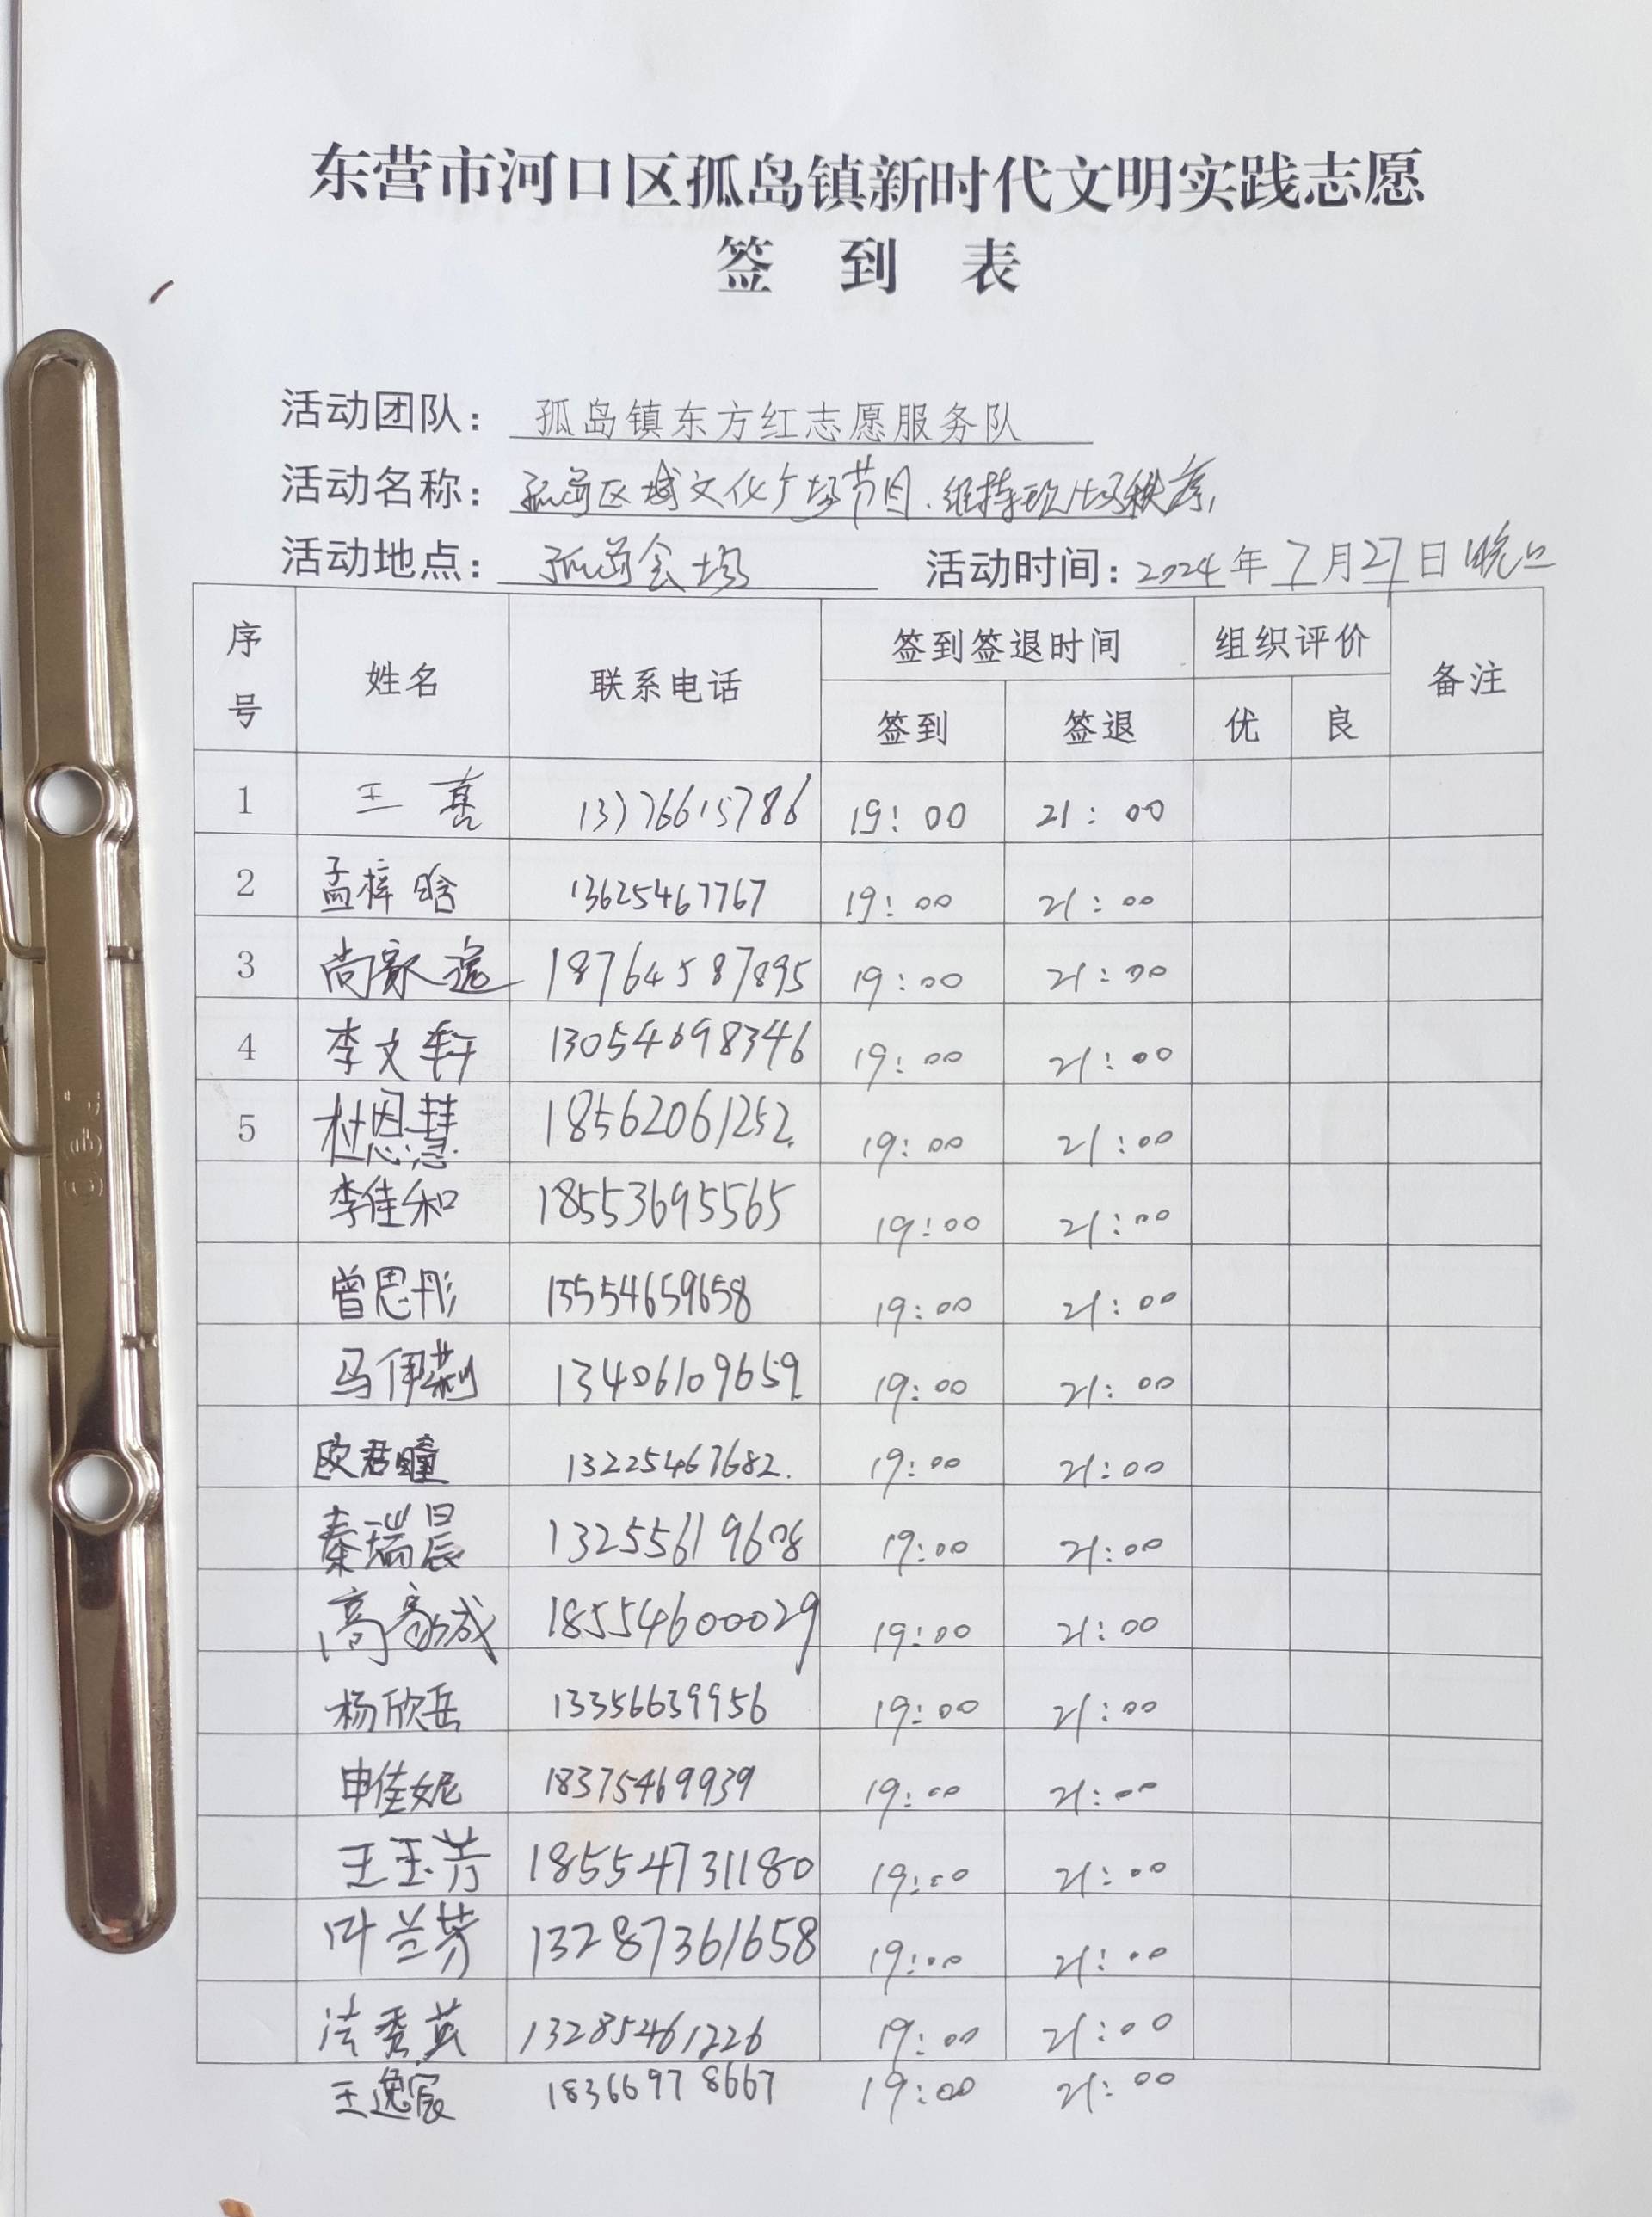 东营市河口区孤岛镇新时代文明实践志愿
签 到 表
活动团队: 孤岛镇东方红志愿服务队
活动名称: 孤岛区域文化广场节目.维持现场秩序
活动地点: 孤岛会场 活动时间: 2024 年 7 月 27 日 晚上
序号 姓名 联系电话 签到签退时间 组织评价 备注
签到 签退 优 良
1 王 13376615786 19:00 21:00
2 孟梓晗 13625467767 19:00 21:00
3 尚家逸 18764587895 19:00 21:00
4 李文轩 13054698346 19:00 21:00
5 杜恩慧 18562061252. 19:00 21:00
李佳和 18553695565 19:00 21:00
曾思彤 13554659658 19:00 21:00
马伊莉 13406109659 19:00 21:00
欧君瞳 13225467682. 19:00 21:00
秦瑞晨 13255619608 19:00 21:00
高豪城 18554600029 19:00 21:00
杨欣岳 13356639956 19:00 21:00
申佳妮 18375469939 19:00 21:00
王玉芳 18554731180 19:00 21:00
叶兰芬 13287361658 19:00 21:00
法秀英 13285461226 19:00 21:00
王逸宸 18366978667 19:00 21:00